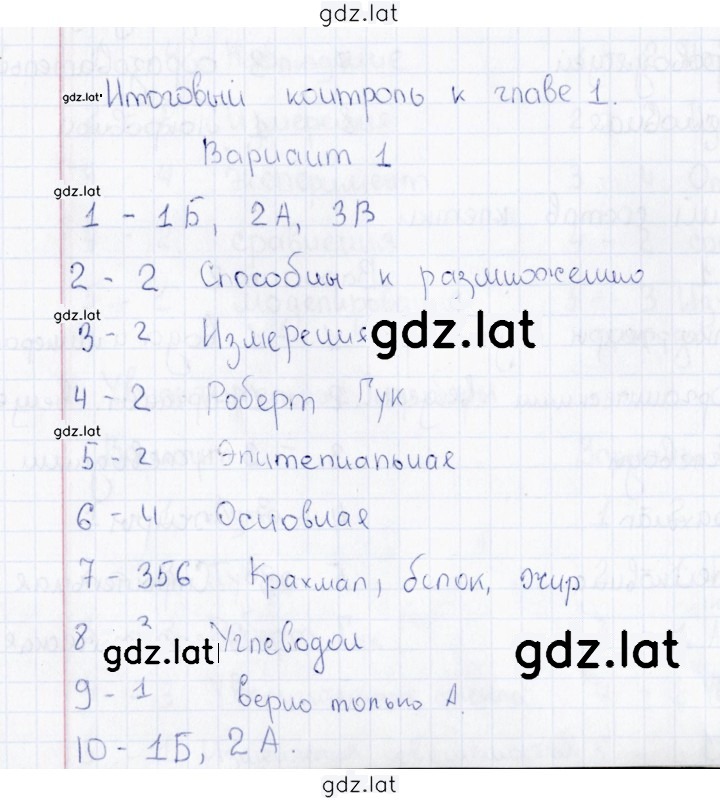 gdz.lat
gdz.lat Итоговый контроль к главе 1.
Вариант 1
gdz.lat
1 - 1Б, 2А, 3В
2 - 2 Способны к размножению
gdz.lat
3 - 2 Измерения gdz.lat
4 - 2 Роберт Гук
gdz.lat
5 - 2 Эпителиальная
6 - 4 Основная
7 - 356 Крахмал, белок, жир
8 - 2 Углеводом
gdz.lat gdz.lat
9 - 1 верно только А.
10 - 1Б, 2А.
gdz.lat